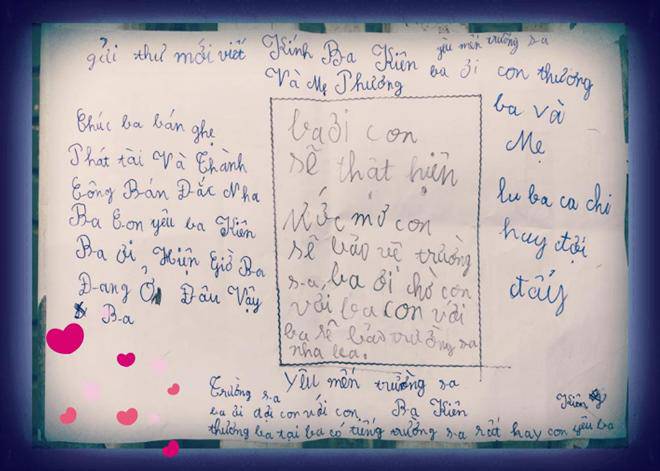 gửi thư mới viết Kính Ba Kiên yêu mến trường sa
Và Mẹ Phương ba ơi con thương
ba và
Mẹ
lu ba ca chi
huy đợi
đấy
Chúc ba bán ghẹ
Phát tài Và Thành
Công Bán Đắc Nha
Ba Con yêu ba Kiên
Ba ơi Hiện Giờ Ba
Đang Ở Đâu Vậy
Ba
ba ơi con
sẽ thật hiện
Ước mơ con
sẽ bảo vệ trường
sa, ba ơi chờ con
với ba con với
ba sẽ bảo trường sa
nha ba.
Trường sa Yêu mến trường sa
ba ơi đợi con với con Ba Kiên Kiên
thương ba tại ba có tiếng trường sa rất hay con yêu ba